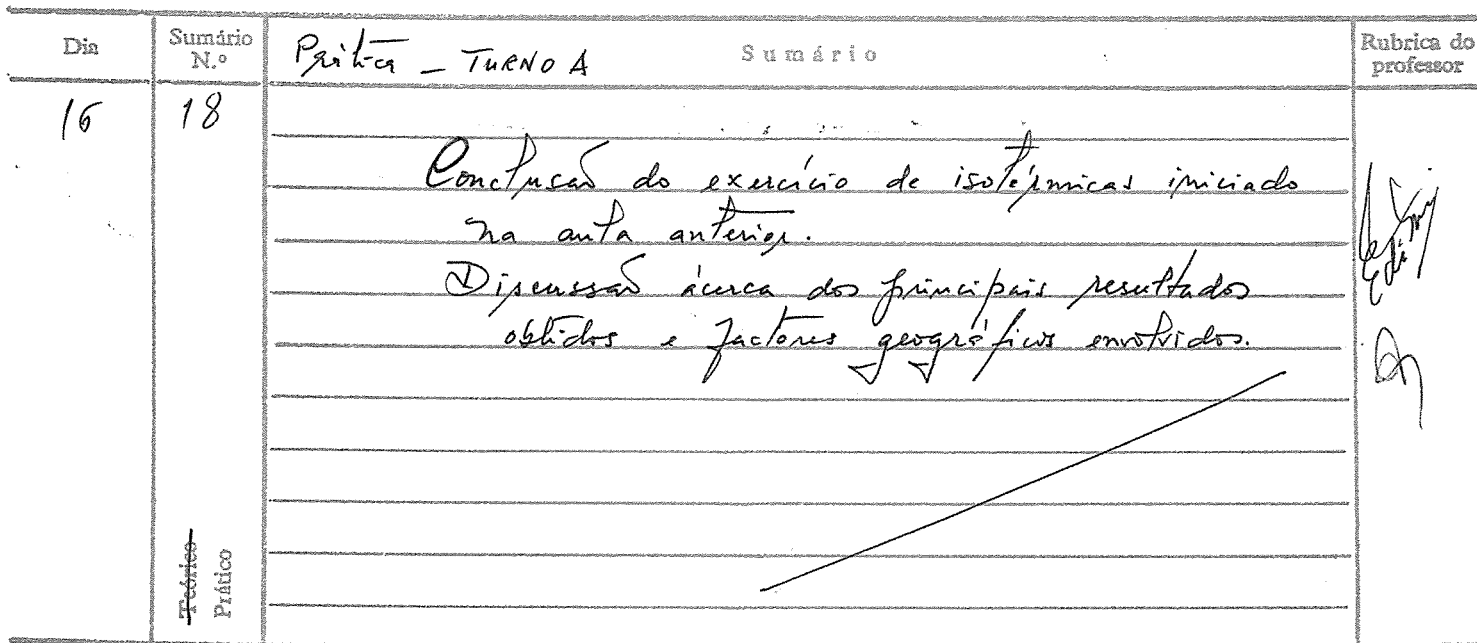 Dia
Sumário N.º
Prática - TURNO A
Sumário
Rubrica do professor
16
18
Conclusão do exercício de isotérmicas iniciado
na aula anterior.
Discussão ácerca dos principais resultados
obtidos e factores geográficos envolvidos.
Teórico
Prático